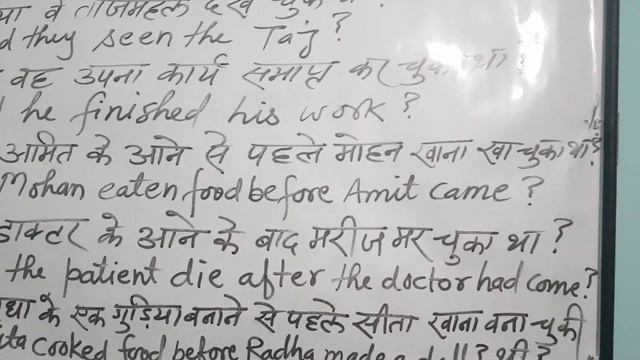 या वे ताजमहल देख चुके
d they seen the Taj?
वह अपना कार्य समाप्त कर चुका था?
he finished his work?
अमित के आने से पहले मोहन खाना खा चुका था?
Mohan eaten food before Amit came?
डाक्टर के आने के बाद मरीज मर चुका था?
the patient die after the doctor had come?
धा के एक गुड़िया बनाने से पहले सीता खाना बना चुकी
ita cooked food before Radha made a doll? थी?